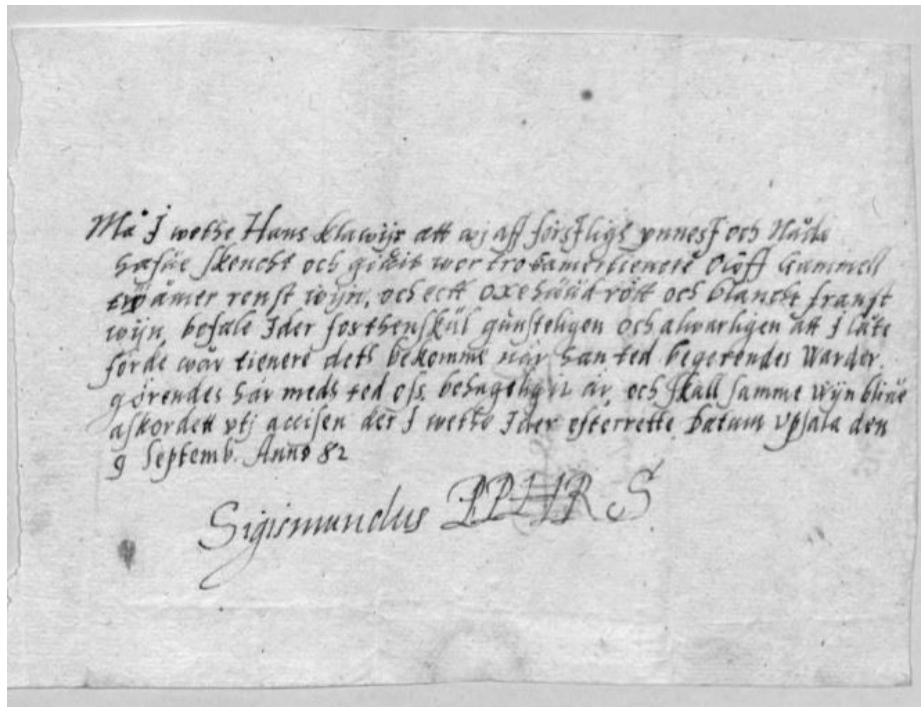 Må I wethe Hans klawijr att wj aff förstligt ynnest och Nåde
haffue skencht och giffuit wor tro kamertienere Oloff Gammell
twå åmer renst wijn, och ett oxehuud rött och blancht franst
wijn, befale Ider forthenskül günsteligen och alwarligen att I låte
förde wår tienere dets bekomme när han ted begerendes Warder.
görendes här meds ted oss behageligen är, och skall samme wijn bliue
afkordett vtj accisen der I wethe Ider efterrette Datum Vpsala den
9 Septemb. Anno 82
Sigismundus PPHR S